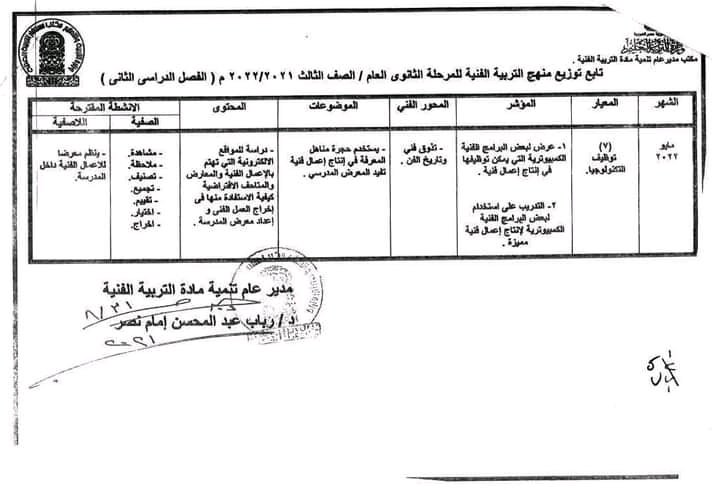 مكتب مدير عام تنمية مادة التربية الفنية .
تابع توزيع منهج التربية الفنية للمرحلة الثانوى العام / الصف الثالث ٢٠٢٢/٢٠٢١ م ( الفصل الدراسى الثانى )
الشهر
المعيار
المؤشر
المحور الفني
الموضوعات
المحتوى
الانشطة المقترحة
الصفية
اللاصفية
مايو
٢٠٢٢
(٧)
توظيف
التكنولوجيا.
١- عرض لبعض البرامج الفنية
الكمبيوترية التي يمكن توظيفها
في إنتاج إعمال فنية .
٢- التدريب على استخدام
لبعض البرامج الفنية
الكمبيوترية لإنتاج إعمال فنية
مميزة .
- تذوق فني
وتاريخ الفن .
- يستخدم حجرة مناهل
المعرفة في إنتاج إعمال فنية
تفيد المعرض المدرسي .
- دراسة للمواقع
الالكترونية التي تهتم
بالإعمال الفنية والمعارض
والمتاحف الافتراضية
كيفية الاستفادة منها فى
إخراج العمل الفنى و
إعداد معرض المدرسة .
- مشاهدة.
- ملاحظة.
- تصنيف.
- تجميع.
- تقييم.
- اختيار.
- اخراج.
- ينظم معرضا
للاعمال الفنية داخل
المدرسة.
مدير عام تنمية مادة التربية الفنية
٨/٣١
أ.د/ رباب عبد المحسن إمام نصر
٢٠٢١